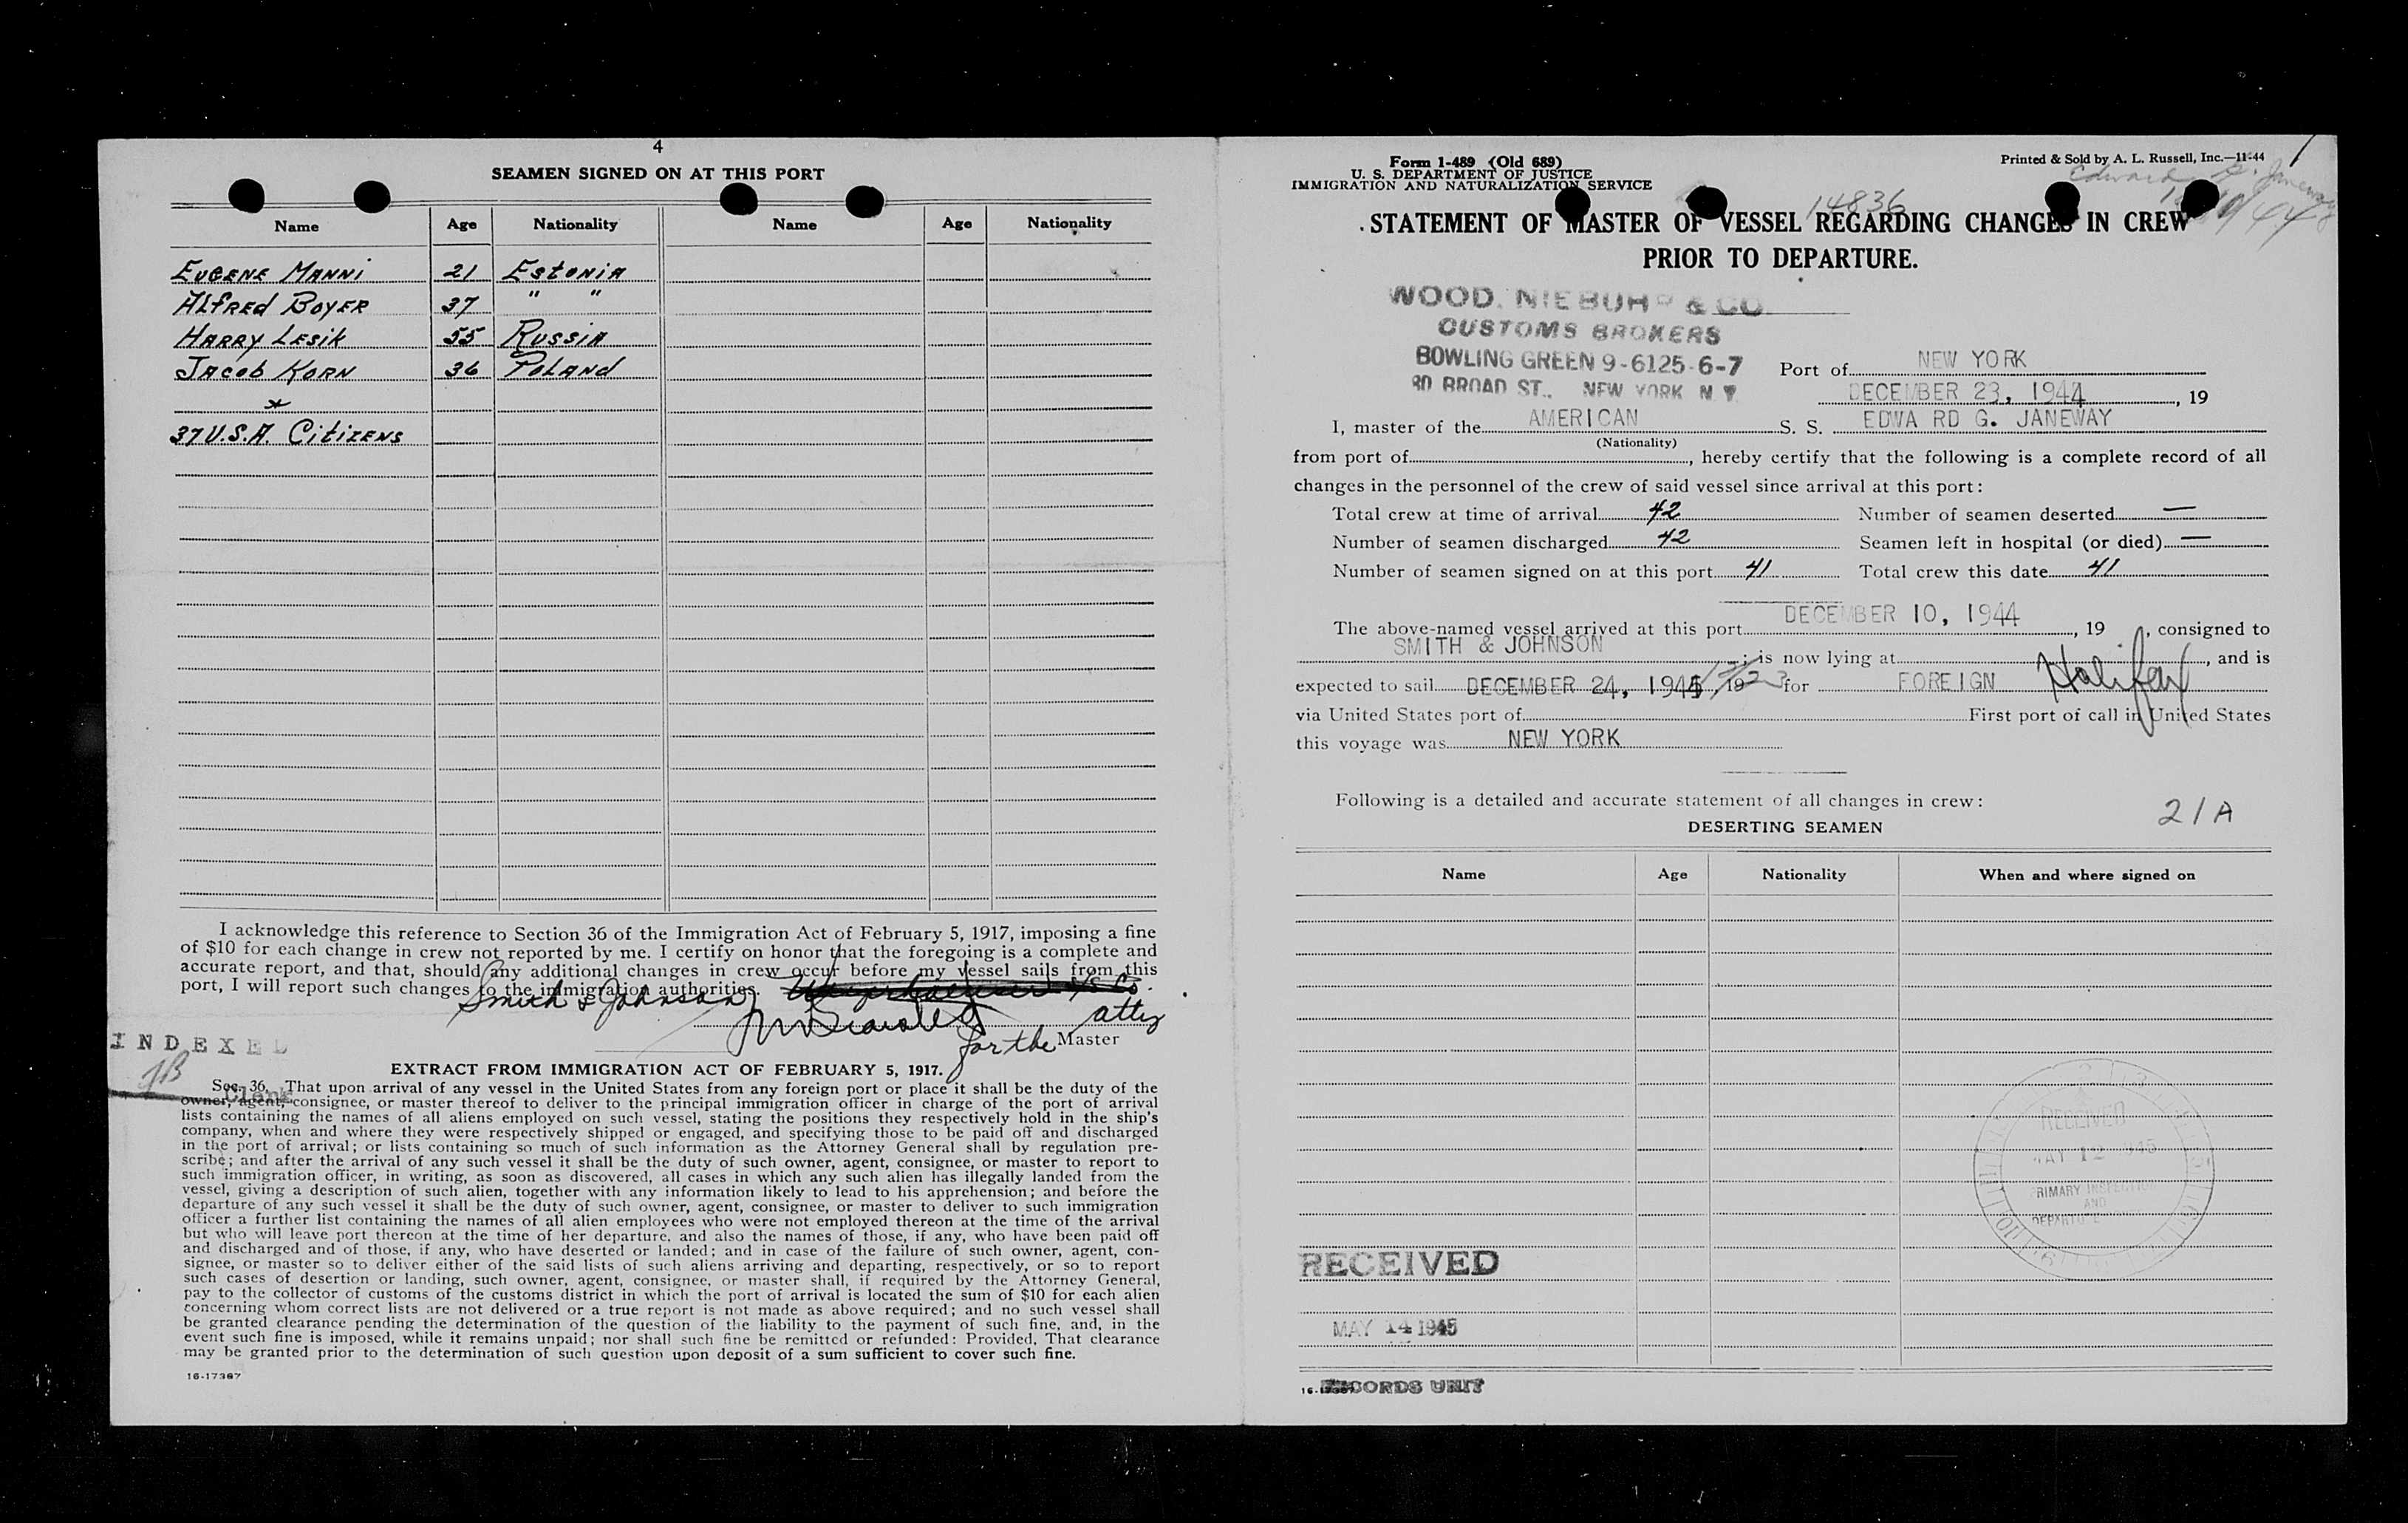 4
SEAMEN SIGNED ON AT THIS PORT
Name Age Nationality Name Age Nationality
EUGENE MANNI 21 Estonia
ALfRED BOYER 37 " "
HARRY LESIK 55 RUSSIA
JACOB KORN 36 POLAND
37 U.S.A. CitizENS
I acknowledge this reference to Section 36 of the Immigration Act of February 5, 1917, imposing a fine
of $10 for each change in crew not reported by me. I certify on honor that the foregoing is a complete and
accurate report, and that, should any additional changes in crew occur before my vessel sails from this
port, I will report such changes to the immigration authorities.
Smith & Johnson
atty
for the Master
INDEXED
JB
Clerk
EXTRACT FROM IMMIGRATION ACT OF FEBRUARY 5, 1917.
Sec. 36. That upon arrival of any vessel in the United States from any foreign port or place it shall be the duty of the
owner, agent, consignee, or master thereof to deliver to the principal immigration officer in charge of the port of arrival
lists containing the names of all aliens employed on such vessel, stating the positions they respectively hold in the ship's
company, when and where they were respectively shipped or engaged, and specifying those to be paid off and discharged
in the port of arrival; or lists containing so much of such information as the Attorney General shall by regulation pre-
scribe; and after the arrival of any such vessel it shall be the duty of such owner, agent, consignee, or master to report to
such immigration officer, in writing, as soon as discovered, all cases in which any such alien has illegally landed from the
vessel, giving a description of such alien, together with any information likely to lead to his apprehension; and before the
departure of any such vessel it shall be the duty of such owner, agent, consignee, or master to deliver to such immigration
officer a further list containing the names of all alien employees who were not employed thereon at the time of the arrival
but who will leave port thereon at the time of her departure, and also the names of those, if any, who have been paid off
and discharged and of those, if any, who have deserted or landed; and in case of the failure of such owner, agent, con-
signee, or master so to deliver either of the said lists of such aliens arriving and departing, respectively, or so to report
such cases of desertion or landing, such owner, agent, consignee, or master shall, if required by the Attorney General,
pay to the collector of customs of the customs district in which the port of arrival is located the sum of $10 for each alien
concerning whom correct lists are not delivered or a true report is not made as above required; and no such vessel shall
be granted clearance pending the determination of the question of the liability to the payment of such fine, and, in the
event such fine is imposed, while it remains unpaid; nor shall such fine be remitted or refunded: Provided, That clearance
may be granted prior to the determination of such question upon deposit of a sum sufficient to cover such fine.
16-17367
Form 1-489 (Old 689)
U. S. DEPARTMENT OF JUSTICE
IMMIGRATION AND NATURALIZATION SERVICE
Printed & Sold by A. L. Russell, Inc.—11-44
Edward G. Janeway
14836
STATEMENT OF MASTER OF VESSEL REGARDING CHANGES IN CREW
PRIOR TO DEPARTURE.
WOOD, NIEBUHR & CO.
CUSTOMS BROKERS
BOWLING GREEN 9-6125-6-7
80 BROAD ST., NEW YORK N. Y.
Port of NEW YORK
DECEMBER 23, 1944, 19
I, master of the AMERICAN S. S. EDWA RD G. JANEWAY
(Nationality)
from port of, hereby certify that the following is a complete record of all
changes in the personnel of the crew of said vessel since arrival at this port:
Total crew at time of arrival 42 Number of seamen deserted —
Number of seamen discharged 42 Seamen left in hospital (or died) —
Number of seamen signed on at this port 41 Total crew this date 41
The above-named vessel arrived at this port DECEMBER 10, 1944, 19 , consigned to
SMITH & JOHNSON; is now lying at, and is
expected to sail DECEMBER 24, 1944, 19 12/23 for FOREIGN Halifax
via United States port of First port of call in United States
this voyage was NEW YORK
Following is a detailed and accurate statement of all changes in crew:
21A
DESERTING SEAMEN
Name Age Nationality When and where signed on
RECEIVED
MAY 12 1945
PRIMARY INSPECTION
AND
DEPARTURE
RECEIVED
MAY 14 1945
RECORDS UNIT
16-17367